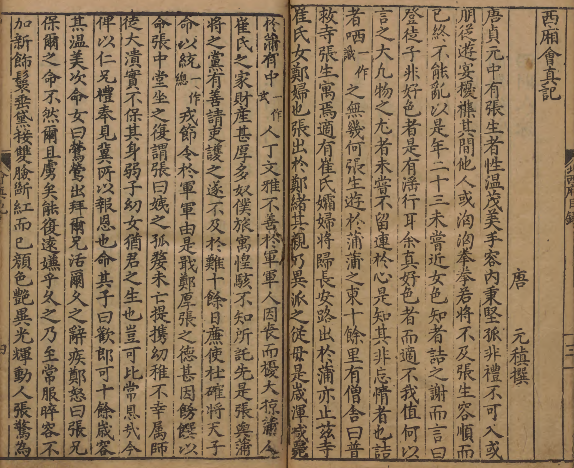 西廂會真記
唐 元稹撰
唐貞元中有張生者性溫茂美丰容內秉堅孤非禮不可入或
朋從遊宴擾雜其間他人或洶洶拳拳若將不及張生容順而
已終不能亂以是年二十三未嘗近女色知者詰之謝而言曰
登徒子非好色者是有淫行耳余真好色者而適不我值何以
言之大凡物之尤者未嘗不留連於心是知其非忘情者也詰
者哂一作識之無幾何張生遊於蒲蒲之東十餘里有僧舍曰普
救寺張生寓焉適有崔氏孀婦將歸長安路出於蒲亦止茲寺
崔氏女鄭婦也張出於鄭緒其親乃異派之從母是歲渾瑊薨
於蒲有中一作丈人丁文雅不善於軍軍人因喪而擾大掠蒲人
崔氏之家財產甚厚多奴僕旅寓惶駭不知所託先是張與蒲
將之黨有善請吏護之遂不及於難十餘日廉使杜確將天子
命以統一作總戎節令於軍軍由是戢鄭厚張之德甚因飾饌以
命張中堂坐之復謂張曰姨之孤嫠未亡提攜幼稚不幸屬師
徒大潰實不保其身弱子幼女猶君之生也豈可比常恩哉今
俾以仁兄禮奉見冀所以報恩也命其子曰歡郎可十餘歲容
甚溫美次命女曰鶯鶯出拜爾兄活爾久之辭疾鄭怒曰張兄
保爾之命不然爾且虜矣能復遠嫌乎久之乃至常服睟容不
加新飾鬟垂黛接雙臉斷紅而已顏色艷異光輝動人張驚為